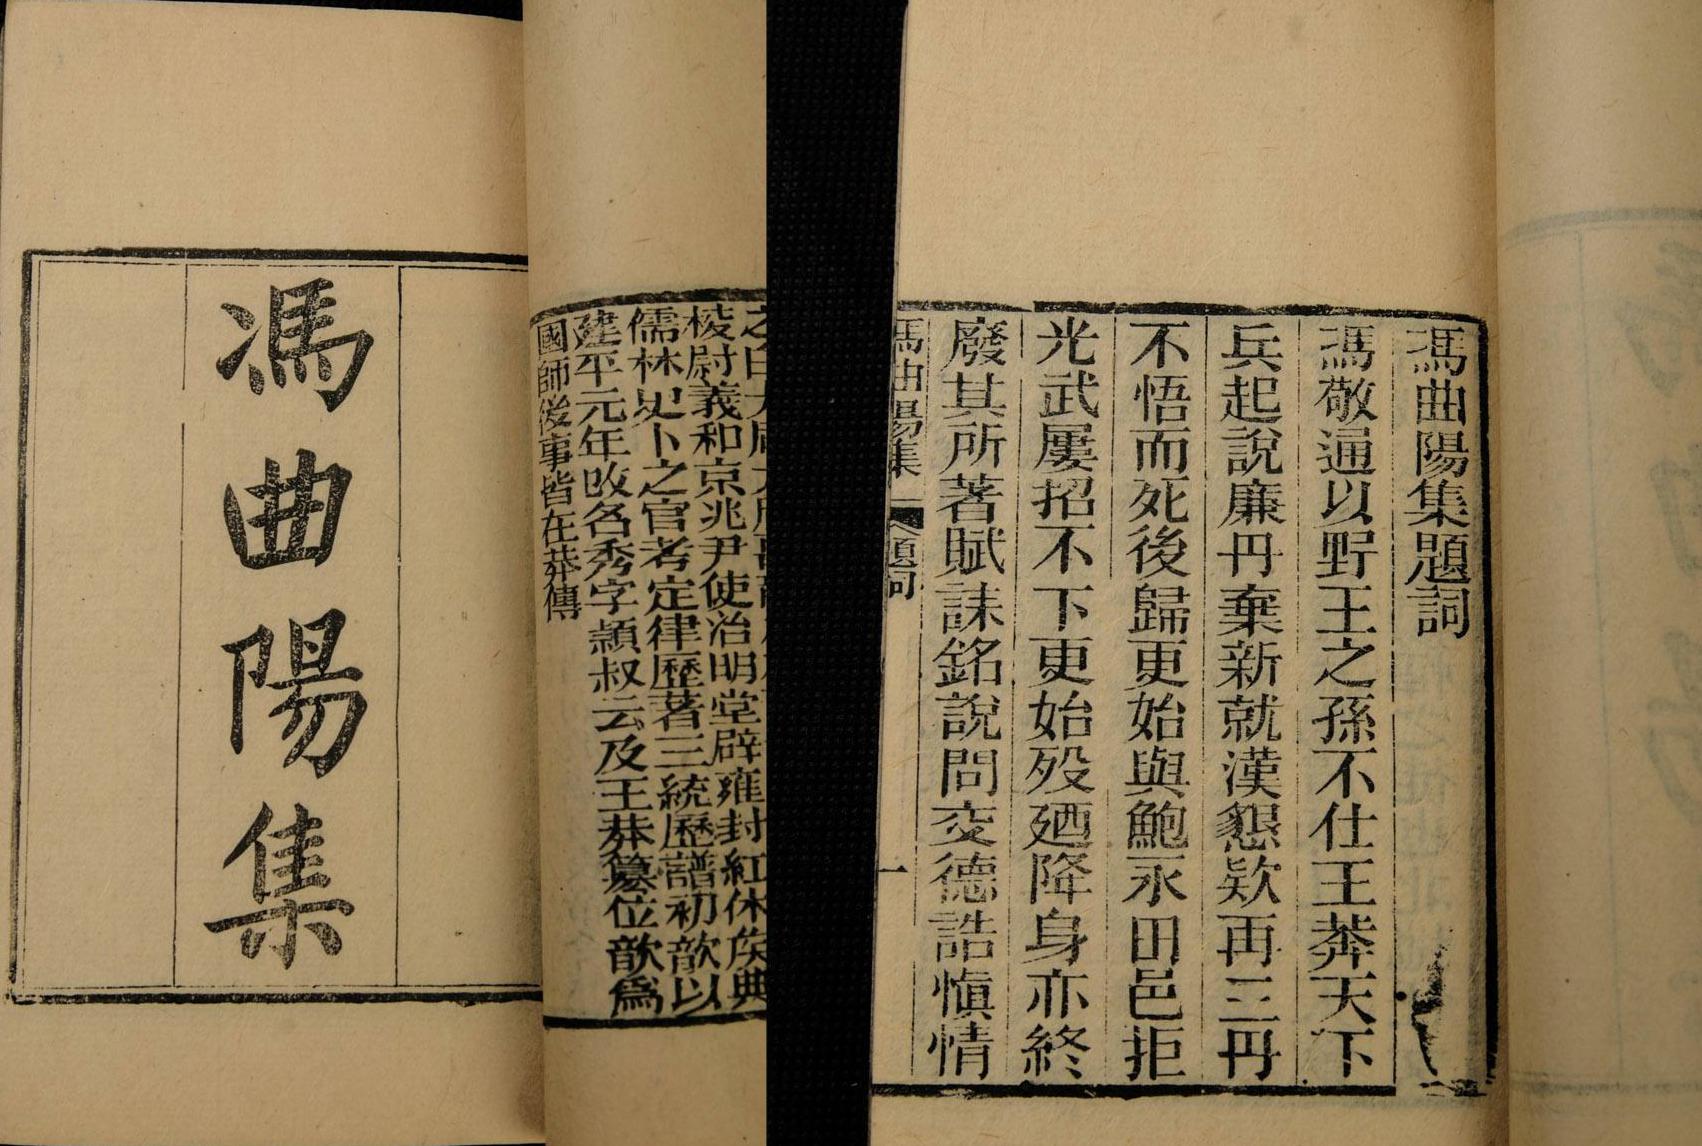 棱尉羲和京兆尹使治明堂辟雍封紅休侯典
儒林史卜之官考定律歷著三統歷譜初歆以
建平元年改名秀字穎叔云及王莽簒位歆爲
國師後事皆在莽傳
馮曲陽集
馮曲陽集題詞
馮敬通以野王之孫不仕王莽天下
兵起說廉丹棄新就漢懇欵再三丹
不悟而死後歸更始與鮑永田邑拒
光武屢招不下更始歿廼降身亦終
廢其所著賦誄銘說問交德誥愼情
馮曲陽集 題詞 一